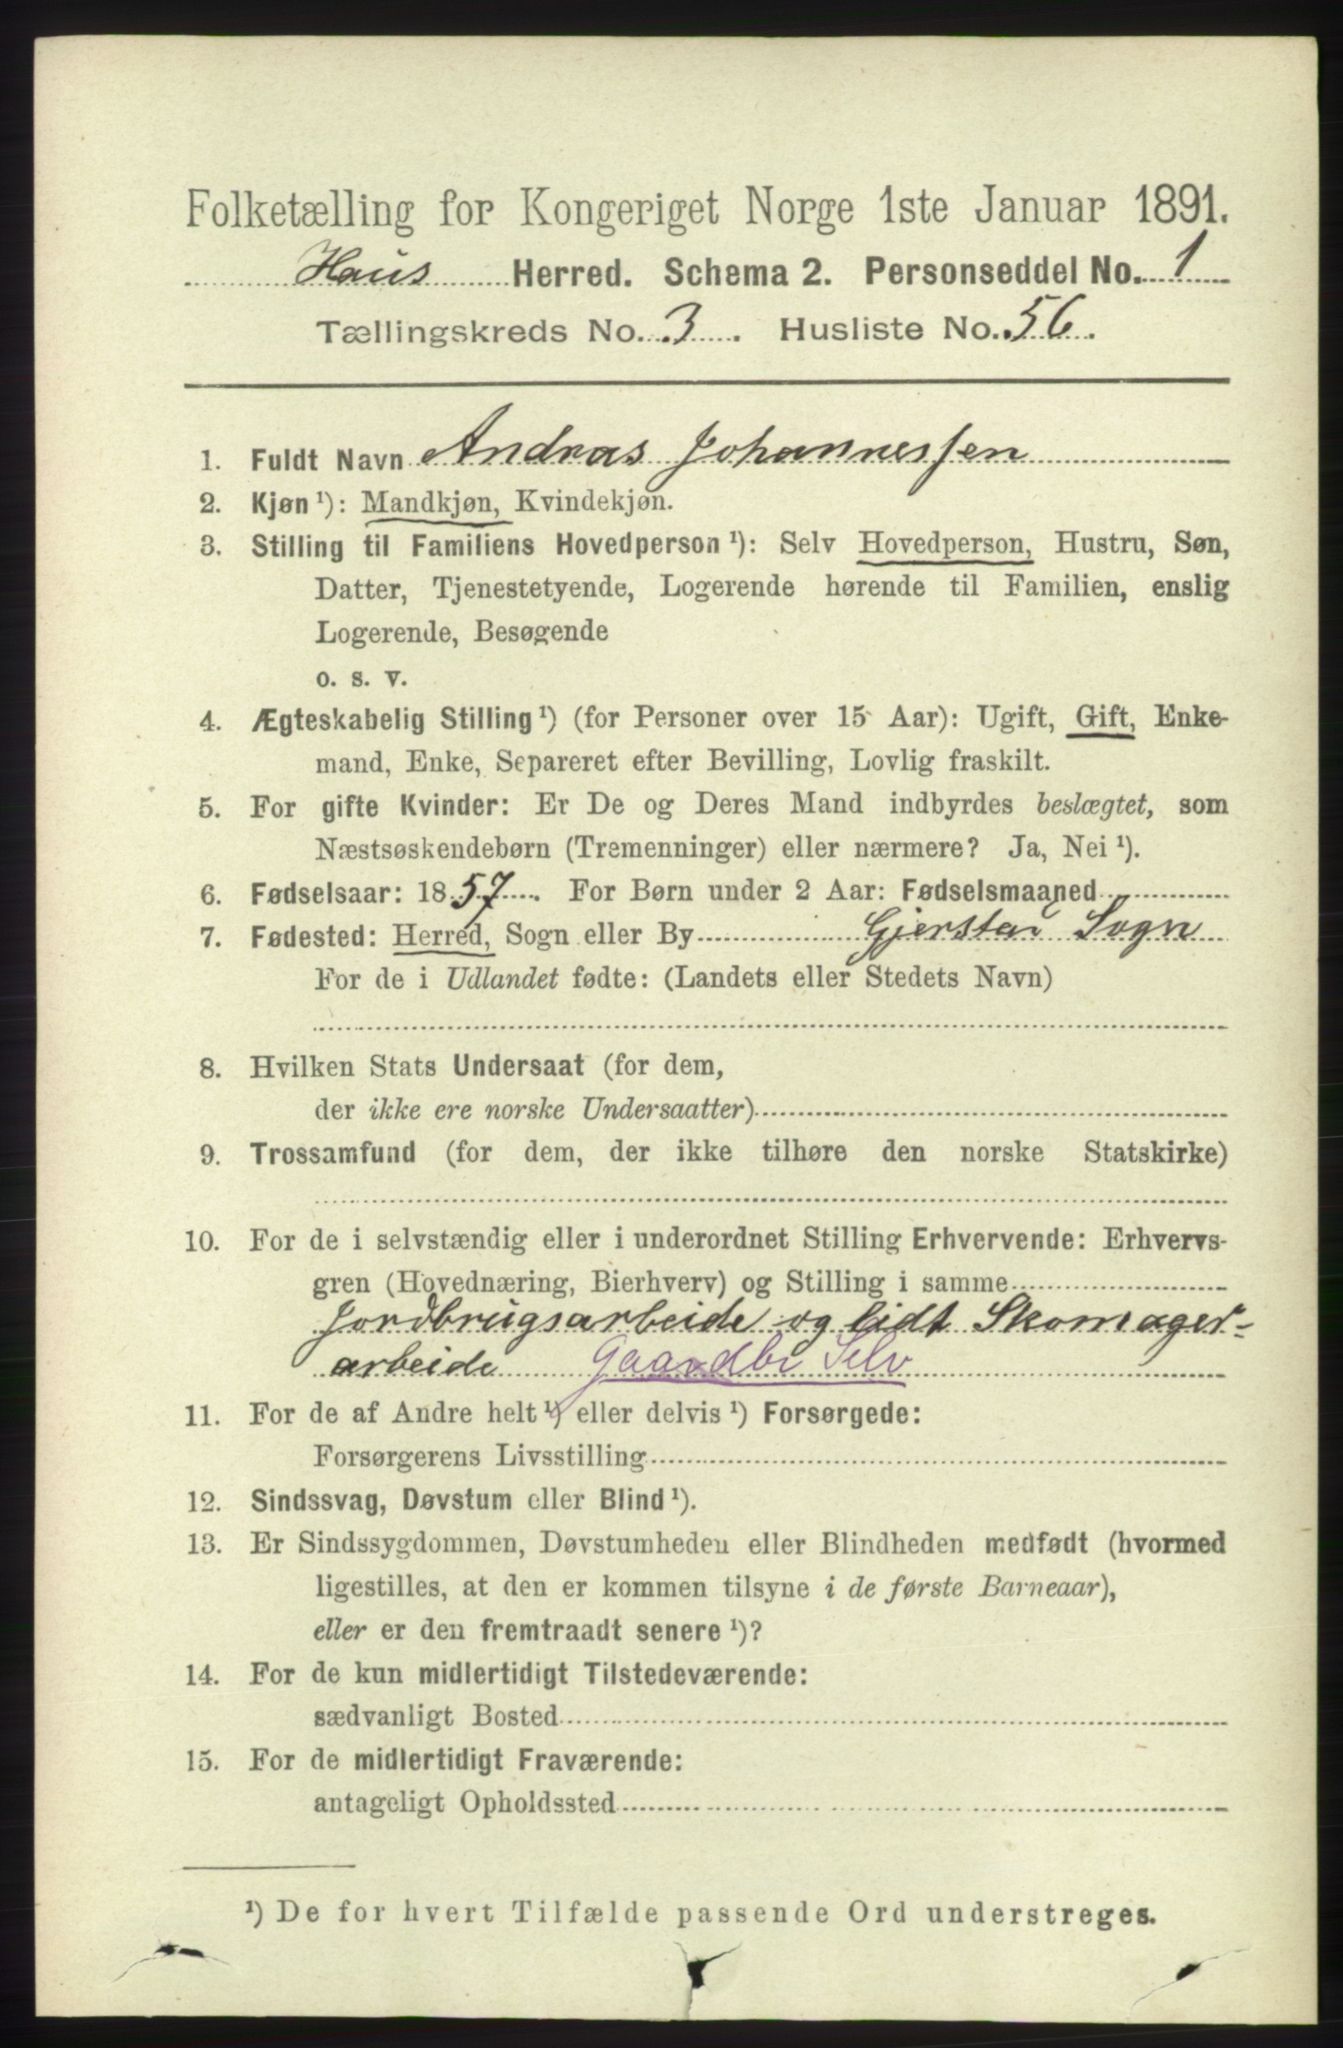 Folketælling for Kongeriget Norge 1ste Januar 1891.
Haus Herred. Schema 2. Personseddel No. 1
Tællingskreds No. 3. Husliste No. 56.
1. Fuldt Navn Andras Johannessen
2. Kjøn¹): Mandkjøn, Kvindekjøn.
3. Stilling til Familiens Hovedperson¹): Selv Hovedperson, Hustru, Søn,
Datter, Tjenestetyende, Logerende hørende til Familien, enslig
Logerende, Besøgende
o. s. v.
4. Ægteskabelig Stilling¹) (for Personer over 15 Aar): Ugift, Gift, Enke-
mand, Enke, Separeret efter Bevilling, Lovlig fraskilt.
5. For gifte Kvinder: Er De og Deres Mand indbyrdes beslægtet, som
Næstsøskendebørn (Tremenninger) eller nærmere? Ja, Nei¹).
6. Fødselsaar: 1857. For Børn under 2 Aar: Fødselsmaaned
7. Fødested: Herred, Sogn eller By Gjerstad Sogn
For de i Udlandet fødte: (Landets eller Stedets Navn)
8. Hvilken Stats Undersaat (for dem,
der ikke ere norske Undersaatter)
9. Trossamfund (for dem, der ikke tilhøre den norske Statskirke)
10. For de i selvstændig eller i underordnet Stilling Erhvervende: Erhvervs-
gren (Hovednæring, Bierhverv) og Stilling i samme
Jordbrugsarbeide og lidt Skomager-
arbeide Gaardbr Selv
11. For de af Andre helt¹) eller delvis¹) Forsørgede:
Forsørgerens Livsstilling
12. Sindssvag, Døvstum eller Blind¹).
13. Er Sindssygdommen, Døvstumheden eller Blindheden medfødt (hvormed
ligestilles, at den er kommen tilsyne i de første Barneaar),
eller er den fremtraadt senere¹)?
14. For de kun midlertidigt Tilstedeværende:
sædvanligt Bosted
15. For de midlertidigt Fraværende:
antageligt Opholdssted
¹) De for hvert Tilfælde passende Ord understreges.